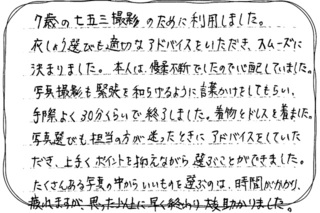 7歳の七五三撮影のために利用しました。
衣しょう選びも適切なアドバイスをいただき、スムーズに
決まりました。本人は、優柔不断でしたので心配していました。
写真撮影も緊張を和らげるように言葉かけをしてもらい、
手際よく30分くらいで終了しました。着物とドレスを着ました。
写真選びも担当の方が迷ったときにアドバイスをしていた
だき、上手くポイントを抑えながら選ぶことができました。
たくさんある写真の中からいいものを選ぶのは、時間がかかり、
疲れますが、思った以上に早く終わり大変助かりました。